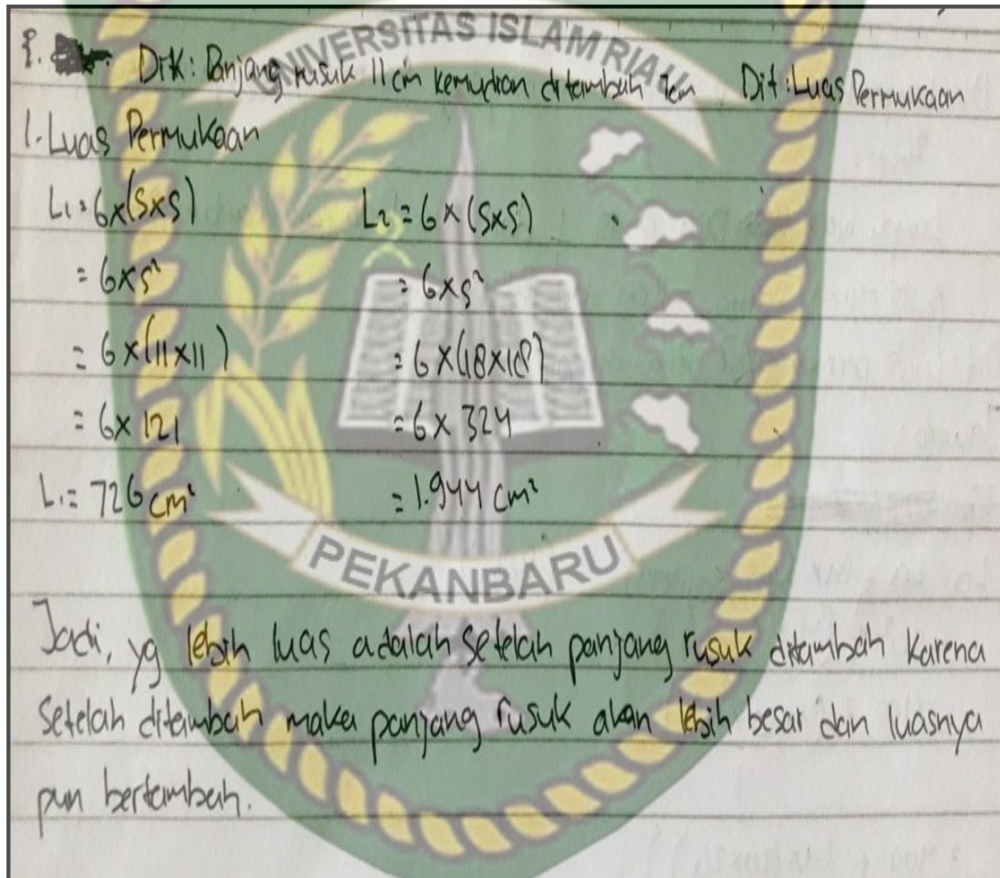 UNIVERSITAS ISLAM RIAU
Dik: Panjang rusuk 11 cm kemudian ditambah 7cm Dit: Luas Permukaan
1. Luas Permukaan
L1 = 6×(S×S) L2 = 6×(S×S)
= 6×S² = 6×S²
= 6×(11×11) = 6×(18×18)
= 6×121 = 6×324
L1 = 726 cm² = 1.944 cm²
PEKANBARU
Jadi, yg lebih luas adalah setelah panjang rusuk ditambah karena
setelah ditambah maka panjang rusuk akan lebih besar dan luasnya
pun bertambah.